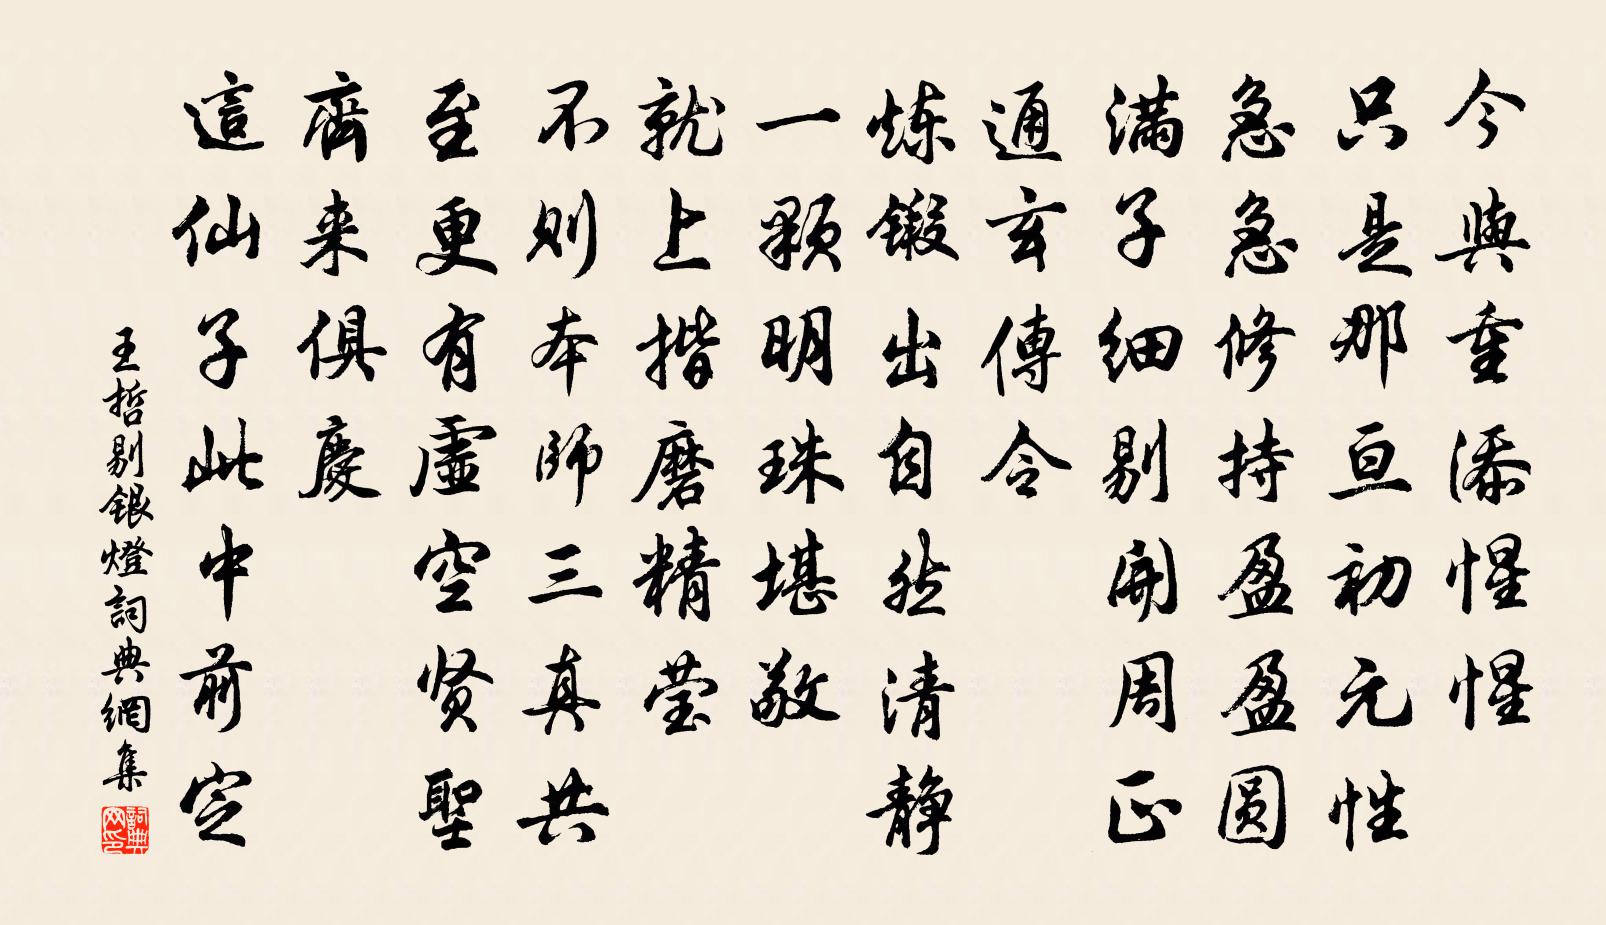 今與重添惺惺
只是那亘初元性
急急修持盈盈圆
满子细剔開周正
通玄傳令
炼鍛出自然清静
一颗明珠堪敬
就上揩磨精莹
不则本師三真共
至更有虚空贤聖
齊来俱慶
這仙子此中前定
王哲剔银燈詞典網集
詞典网印